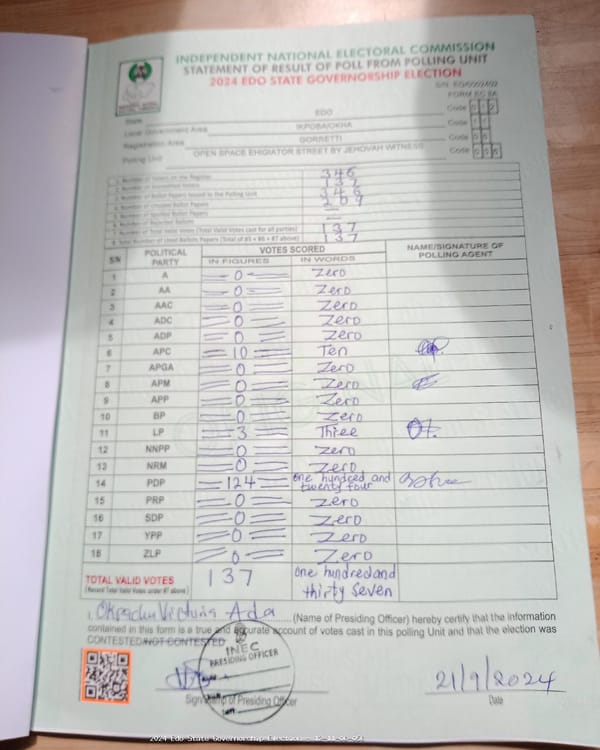 INDEPENDENT NATIONAL ELECTORAL COMMISSION
STATEMENT OF RESULT OF POLL FROM POLLING UNIT
2024 EDO STATE GOVERNORSHIP ELECTION
FORM EC 8A
State EDO Code
Local Government Area IKPOBA/OKHA Code
Registration Area GORRETTI Code
Polling Unit OPEN SPACE EHIGIATOR STREET BY JEHOVAH WITNESS Code
1 Number of Voters on the Register 346
2 Number of Accredited Voters 137
3 Number of Ballot Papers Issued to the Polling Unit 346
4 Number of Unused Ballot Papers 209
5 Number of Spoiled Ballot Papers —
6 Number of Rejected Ballots —
7 Number of Total Valid Votes (Total Valid Votes cast for all parties) 137
8 Total Number of Used Ballot Papers (Total of #5 + #6 + #7 above) 137
S/N POLITICAL PARTY VOTES SCORED NAME/SIGNATURE OF POLLING AGENT
IN FIGURES IN WORDS
1 A 0 Zero
2 AA 0 Zero
3 AAC 0 Zero
4 ADC 0 Zero
5 ADP 0 Zero
6 APC 10 Ten
7 APGA 0 Zero
8 APM 0 Zero
9 APP 0 Zero
10 BP 0 Zero
11 LP 3 Three
12 NNPP 0 Zero
13 NRM 0 Zero
14 PDP 124 one hundred and twenty four
15 PRP 0 Zero
16 SDP 0 Zero
17 YPP 0 Zero
18 ZLP 0 Zero
TOTAL VALID VOTES 137 one hundred and
(Record Total Valid Votes under #7 above) thirty Seven
I, Victoria Ada (Name of Presiding Officer) hereby certify that the information
contained in this form is a true and accurate account of votes cast in this polling Unit and that the election was
CONTESTED/NOT CONTESTED
INEC
PRESIDING OFFICER
21/9/2024
Signature of Presiding Officer Date
2024 Edo State Governorship Election